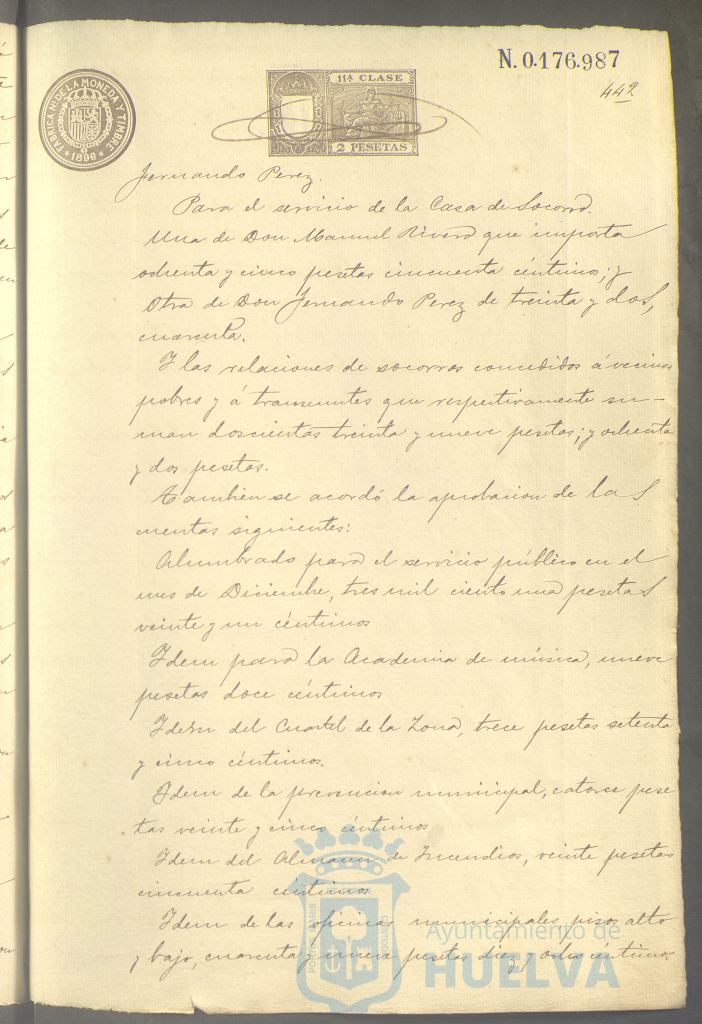 N. 0.176.987
442
11ª CLASE
2 PESETAS
FABRICA NL DE LA MONEDA Y TIMBRE
* 1898 *
Fernando Perez.
Para el servicio de la Casa de Socorro.
Una de Don Manuel Rivero que importa
ochenta y cinco pesetas cincuenta céntimos; y
Otra de Don Fernando Perez de treinta y dos,
cuarenta.
Y las relaciones de socorros concedidos á vecinos
pobres y á transeuntes que respectivamente su-
man doscientas treinta y nueve pesetas; y ochenta
y dos pesetas.
Tambien se acordó la aprobacion de las
cuentas siguientes:
Alumbrado para el servicio público en el
mes de Diciembre, tres mil ciento una pesetas
veinte y un céntimos
Idem para la Academia de música, nueve
pesetas doce céntimos
Idem del Cuartel de la Zona, trece pesetas setenta
y cinco céntimos.
Idem de la prevencion municipal, catorce pese
tas veinte y cinco céntimos
Idem del Almacen de Incendios, veinte pesetas
cincuenta céntimos
Idem de las oficinas municipales pisos alto
y bajo, cuarenta y nueve pesetas diez y ocho céntimos
PORTUS MARIS
CUSTODIA
Ayuntamiento de
HUELVA